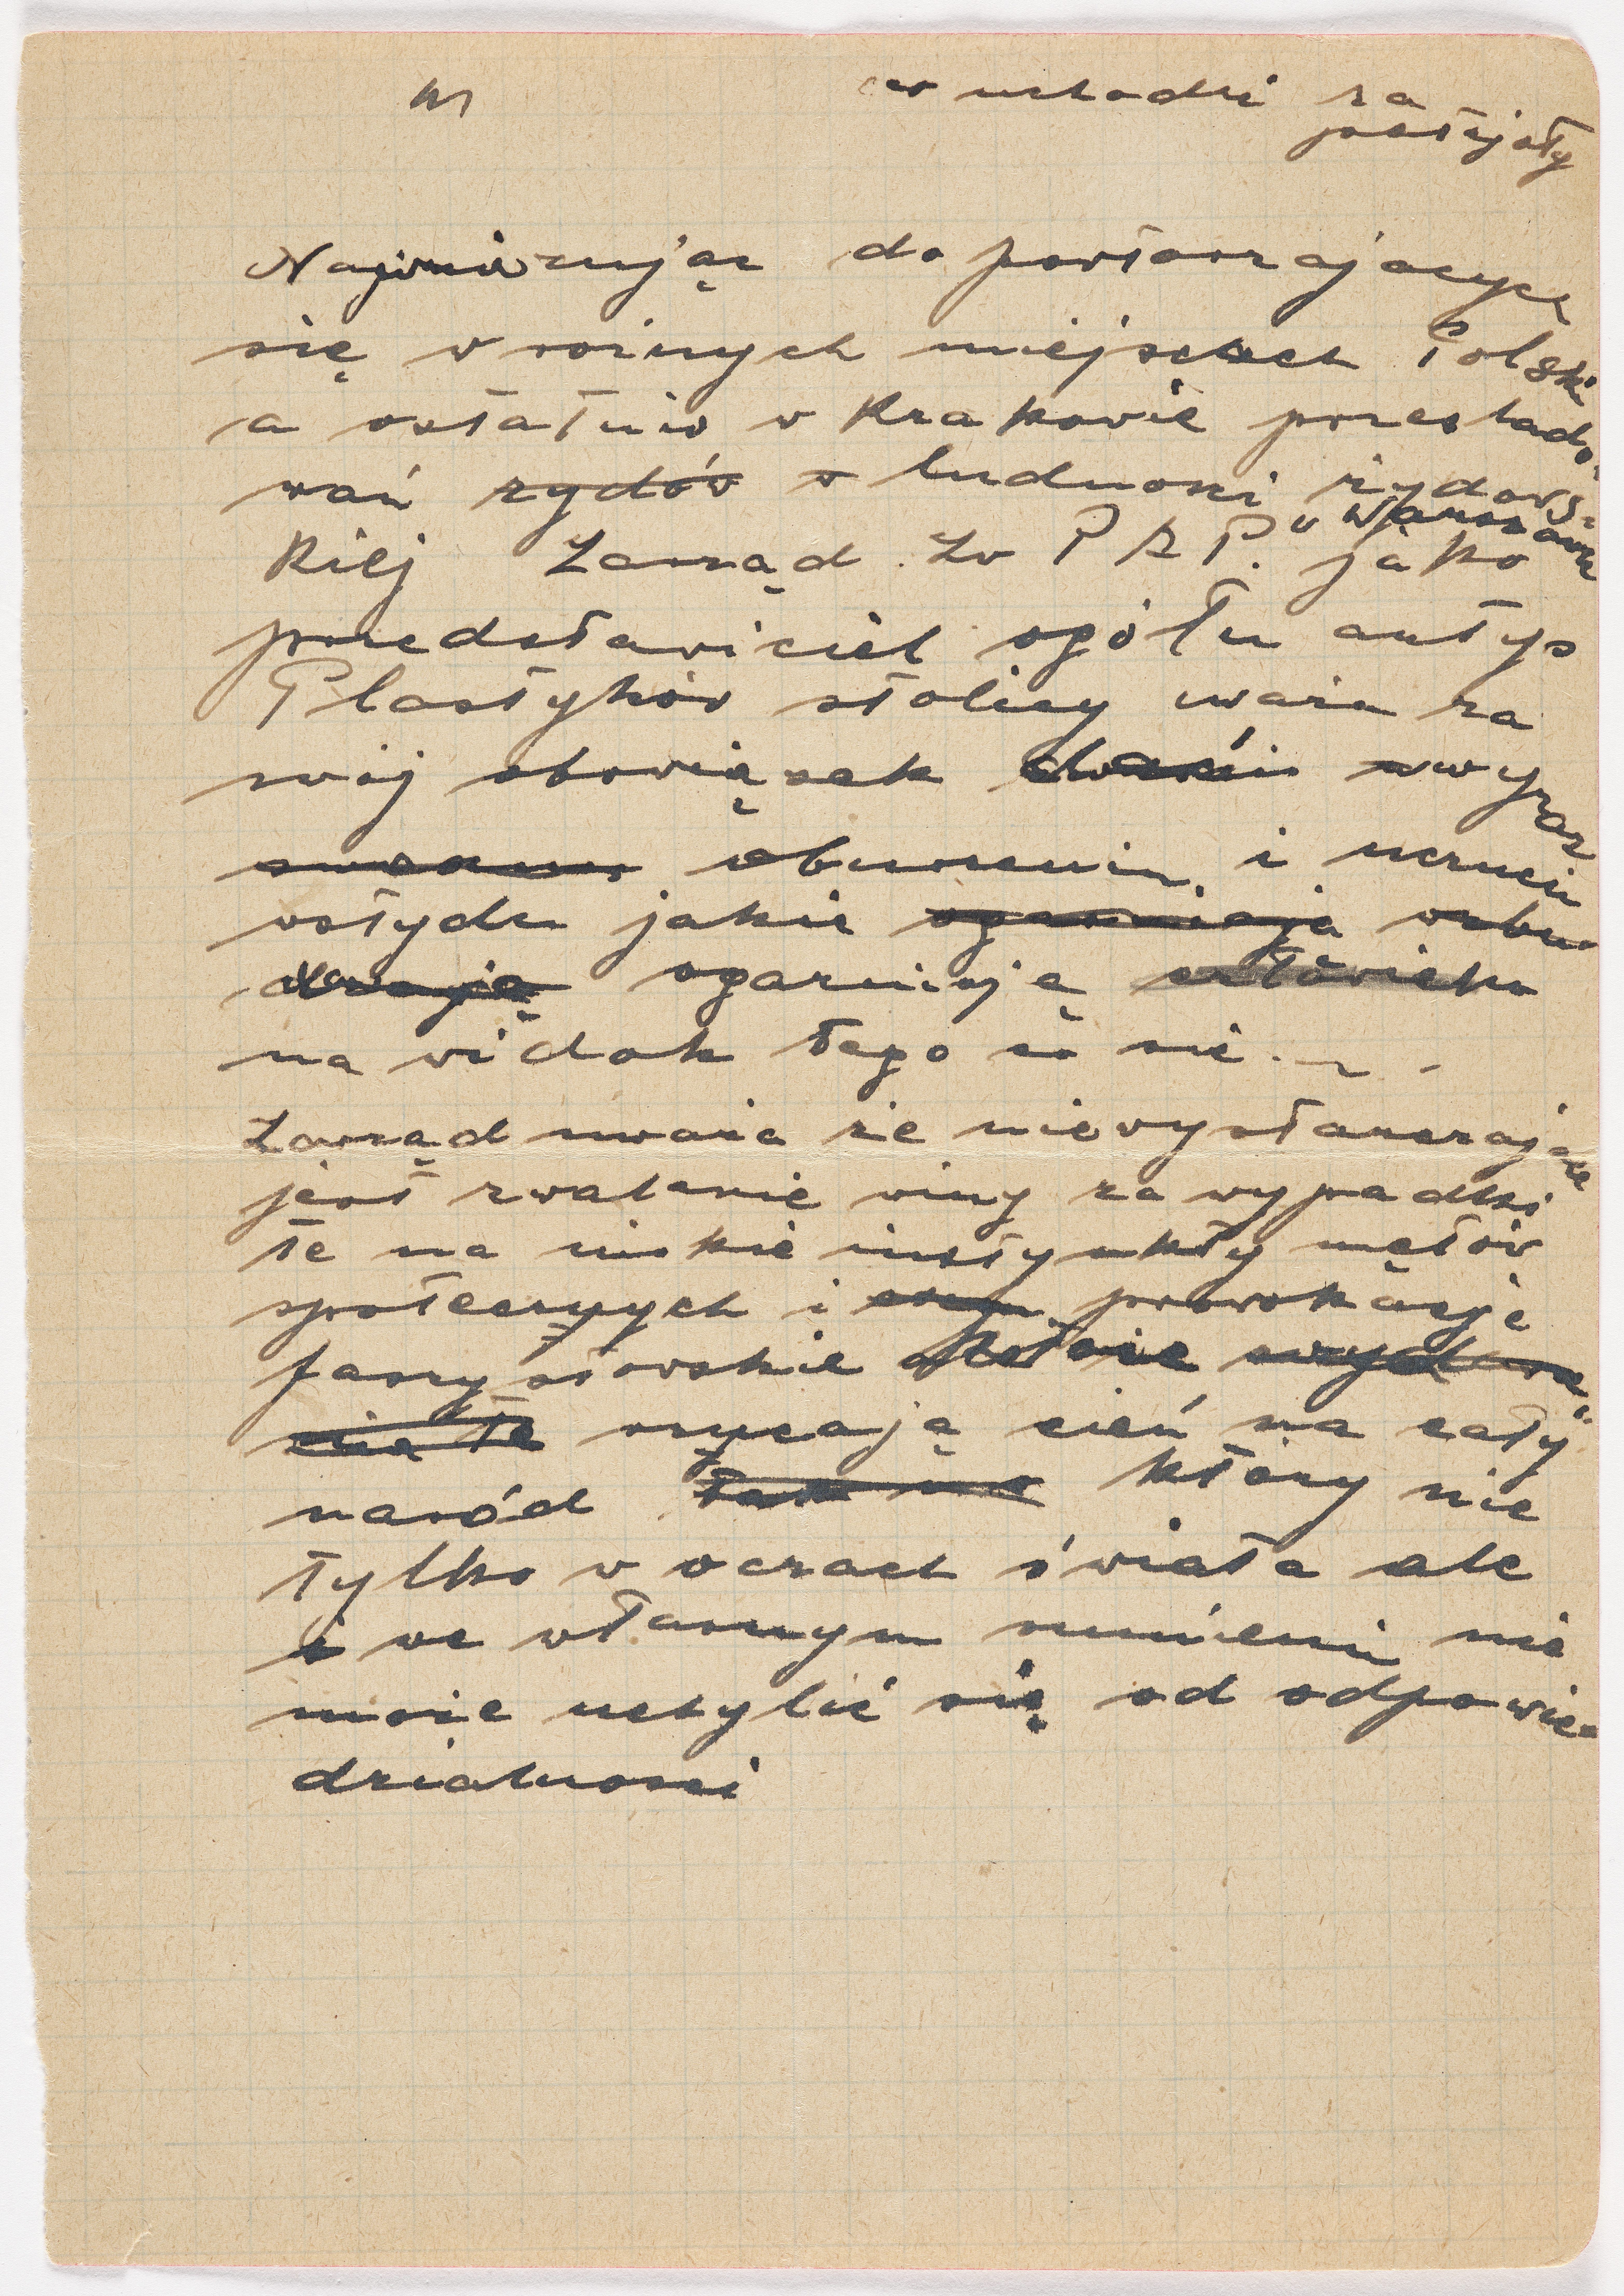 co uchodzi za
Nawiązując do powtarzających
się w różnych miejscach Polski
a ostatnio w Krakowie prześlado-
wań żydów w ludności żydows-
kiej Zarząd Zw P A P. w Warszawie jako
przedstawiciel ogółu artys
Plastyków stolicy uważa za
swój obowiązek wyraz
oburzenia i uczucia
wstydu jakie ogarniają wzbu-
dzają ogarniają człowieka
na widok tego co się
Zarząd uważa że niewystarczające
jest zwalanie winy za wypadki
te na niskie instynkty mętów
społecznych i prowokacje
faszystowskie
cia te rzucają cień na cały
naród tak no który nie
tylko w oczach świata ale
i we własnym sumieniu nie
może uchylić się od odpowie-
dzialności